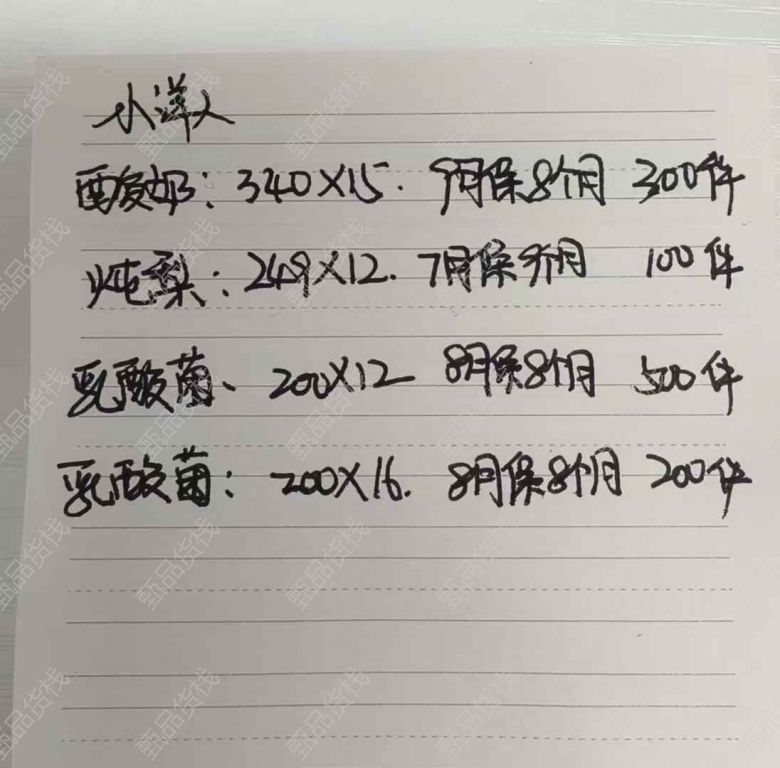 小洋人
酉发奶：340×15. 9月保8个月 300件
炖梨：249×12. 7月保9个月 100件
乳酸菌、200×12 8月保8个月 500件
乳酸菌：200×16. 8月保8个月 200件
甄品货栈